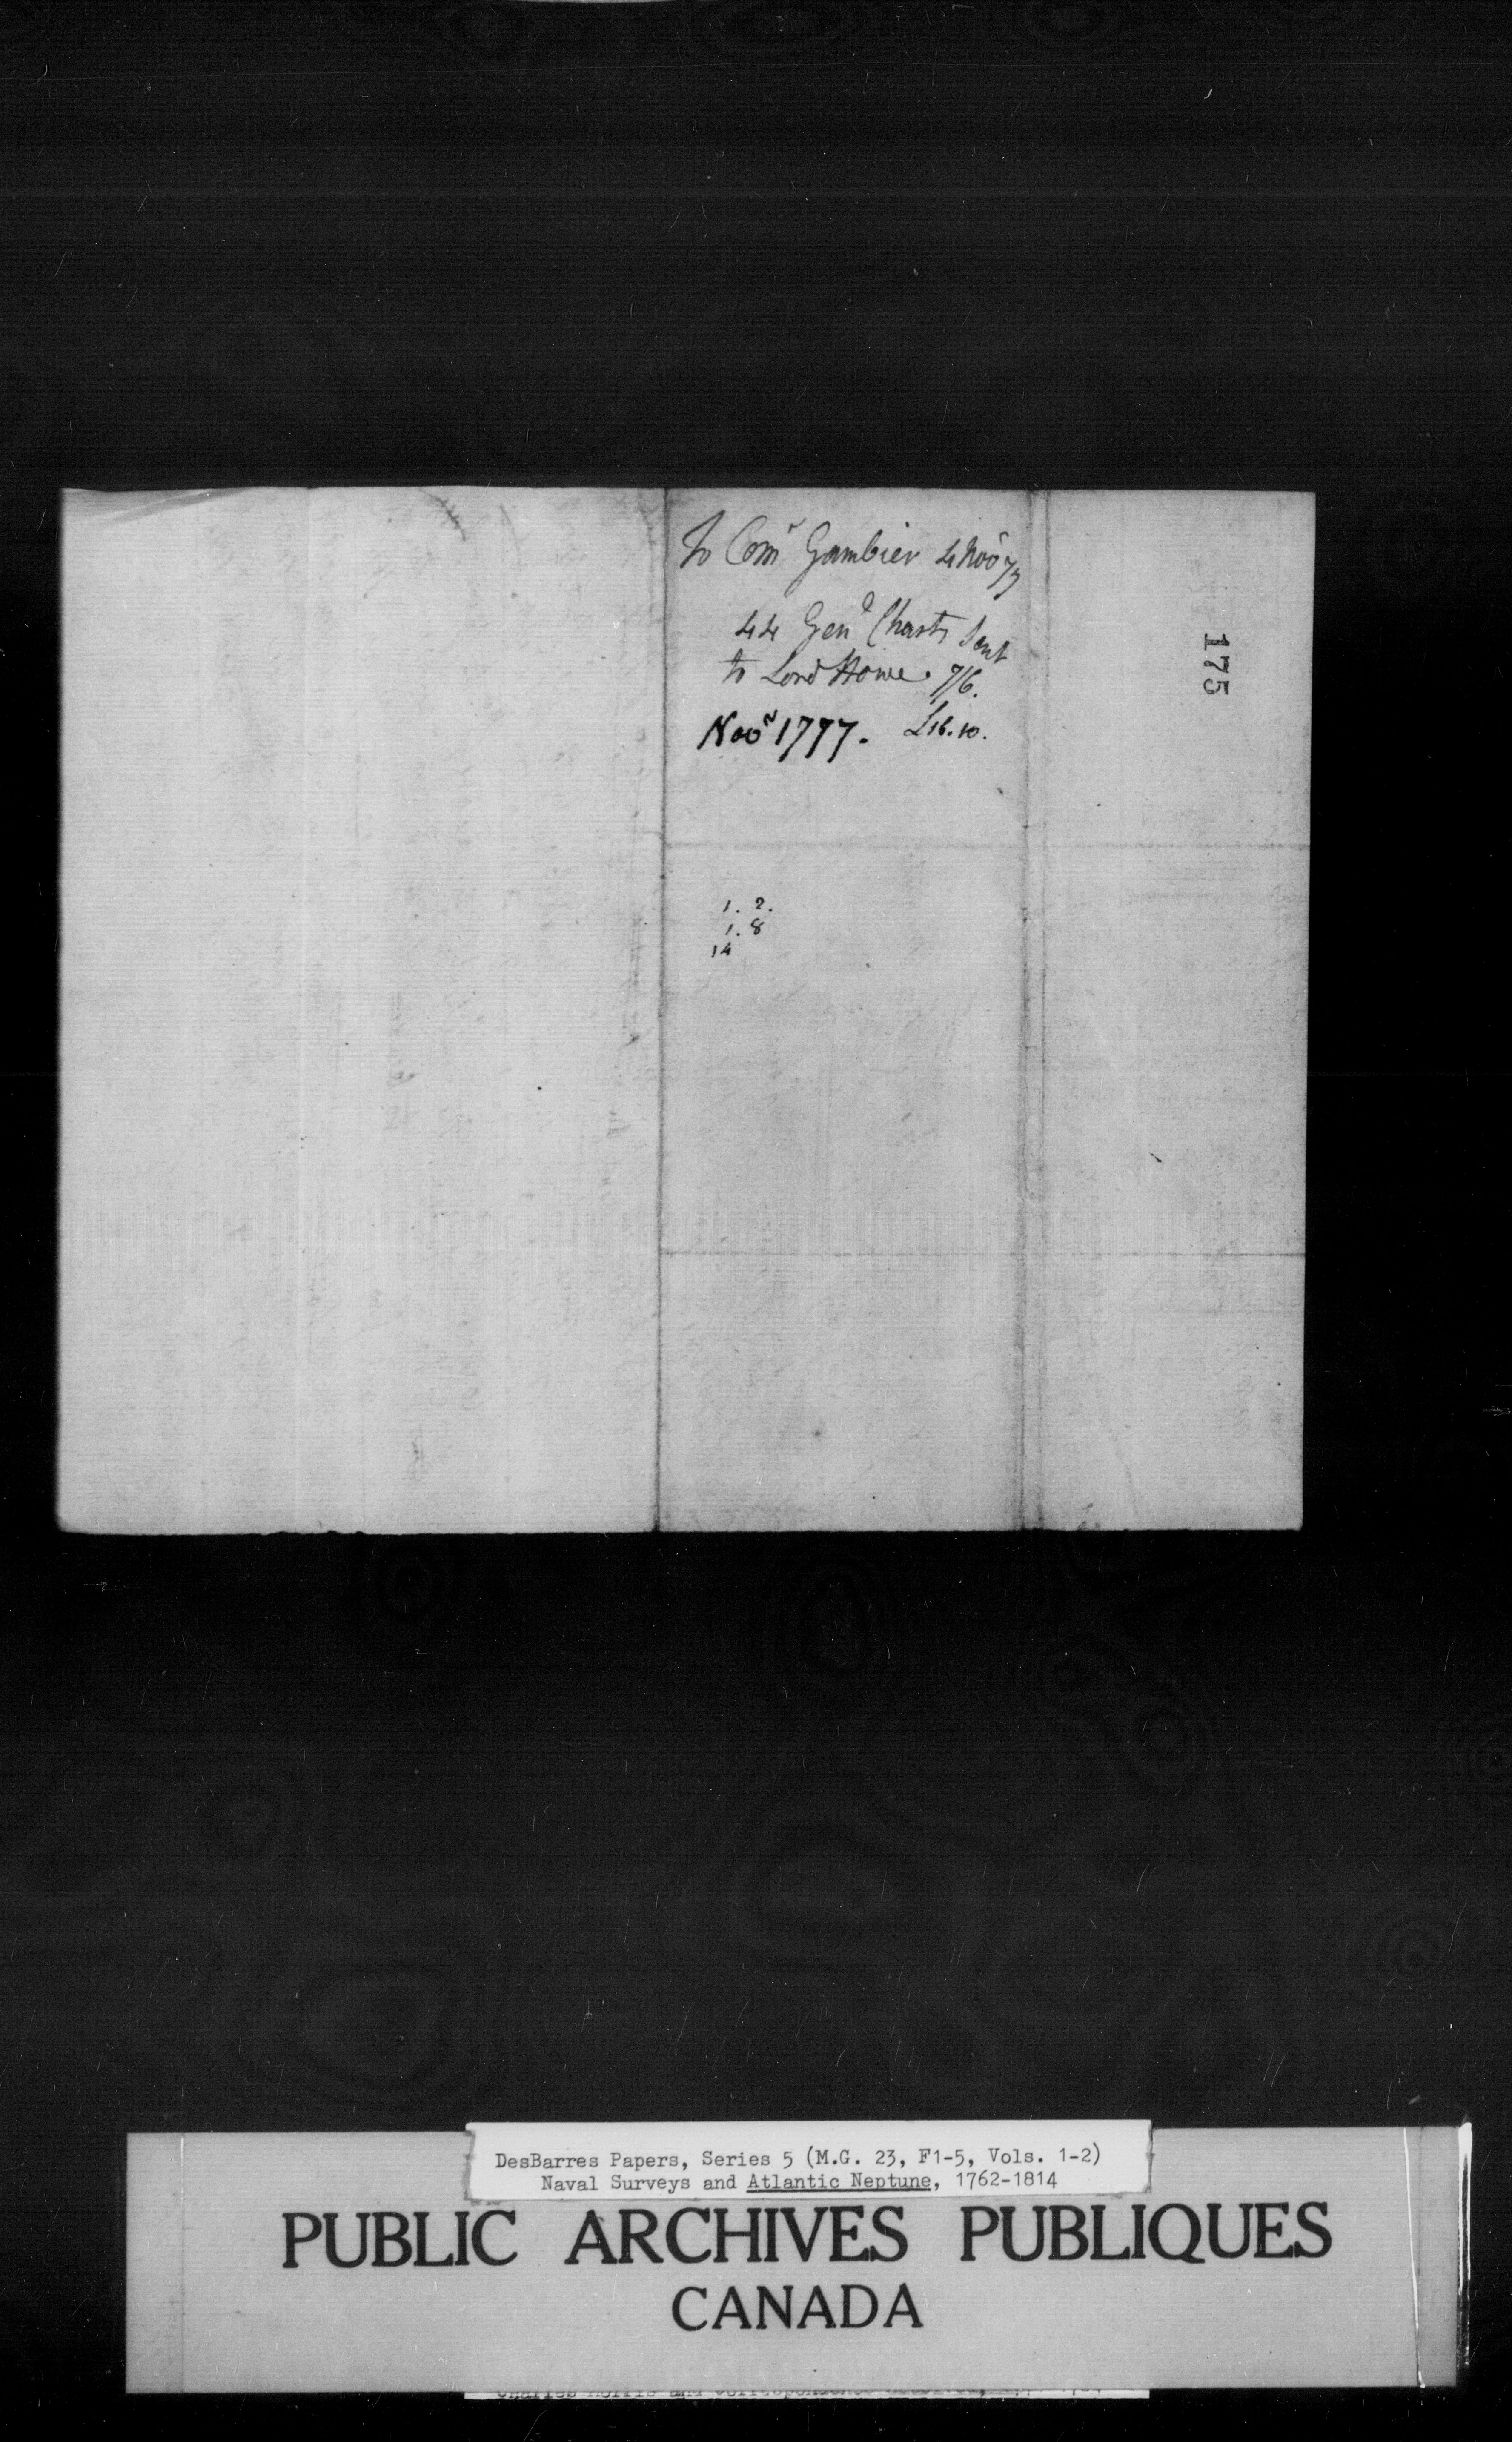 To Comr Gambier 4 Novr 77
44 Genl Charts Sent
to Lord Howe. 7/6.
Novr 1777. £16.10.
1. 2.
1. 8
14
175
DesBarres Papers, Series 5 (M.G. 23, F1-5, Vols. 1-2)
Naval Surveys and Atlantic Neptune, 1762-1814
PUBLIC ARCHIVES PUBLIQUES
CANADA